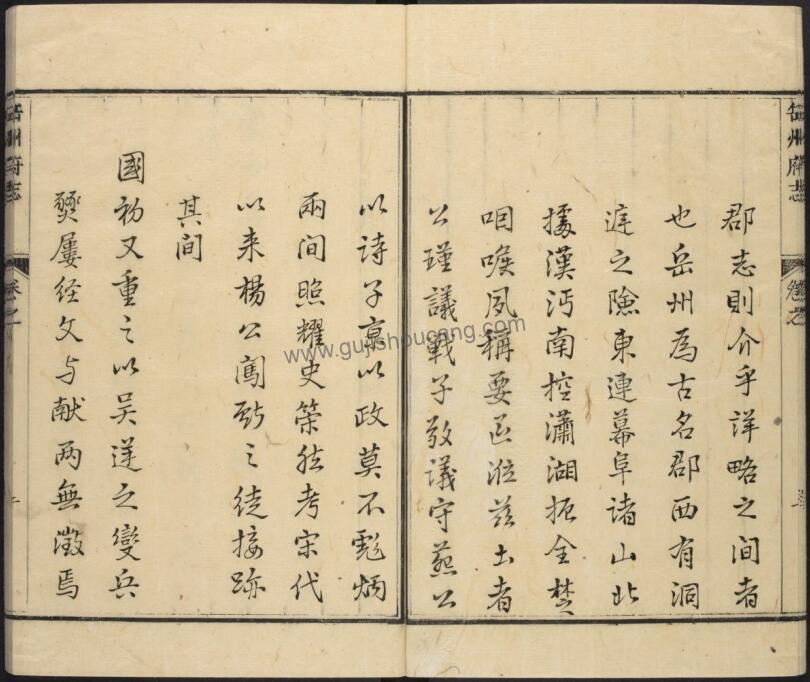 郡志則介乎詳略之间者
也岳州為古名郡西有洞
庭之險東連幕阜诸山北
據漢沔南控瀟湖扼全楚
咽喉夙稱要區涖茲土者
公瑾議戰子敬議守燕公
以诗子京以政莫不彪炳
兩间照耀史策然考宋代
以来楊公闖献之徒接跡
其间
國初又重之以吴逆之變兵
燹屢经文与献两無徵焉
岳州府志
岳州府志
www.gujishoucang.com